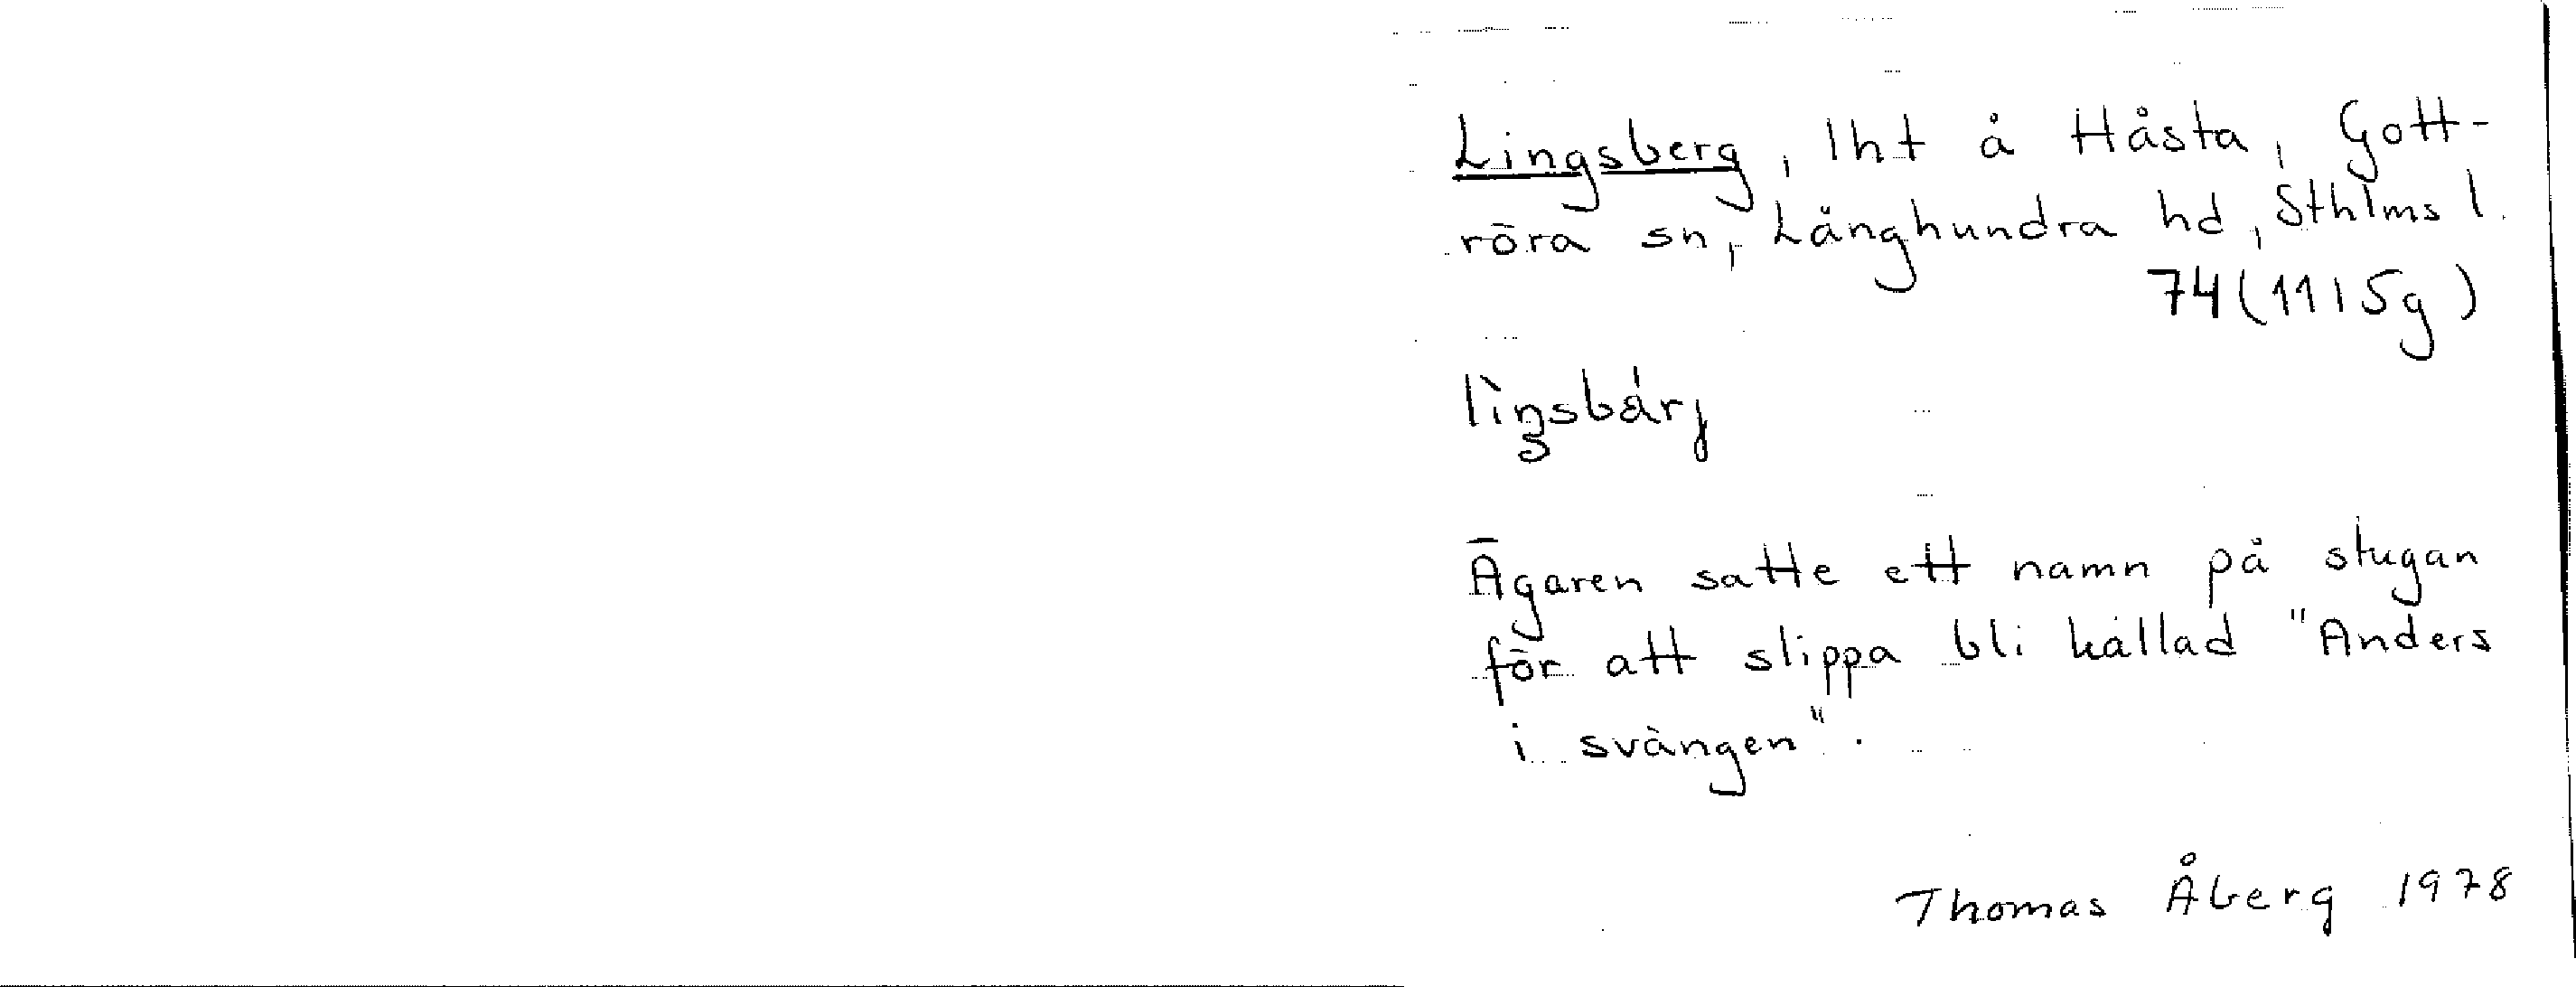 Lingsberg, lht å Håsta, Gott-
röra sn, Långhundra hd, Sthlms l.
74 (11 I 5g)
lìŋsbárj
Ägaren satte ett namn på stugan
för att slippa bli kallad "Anders
i svängen".
Thomas Åberg 1978